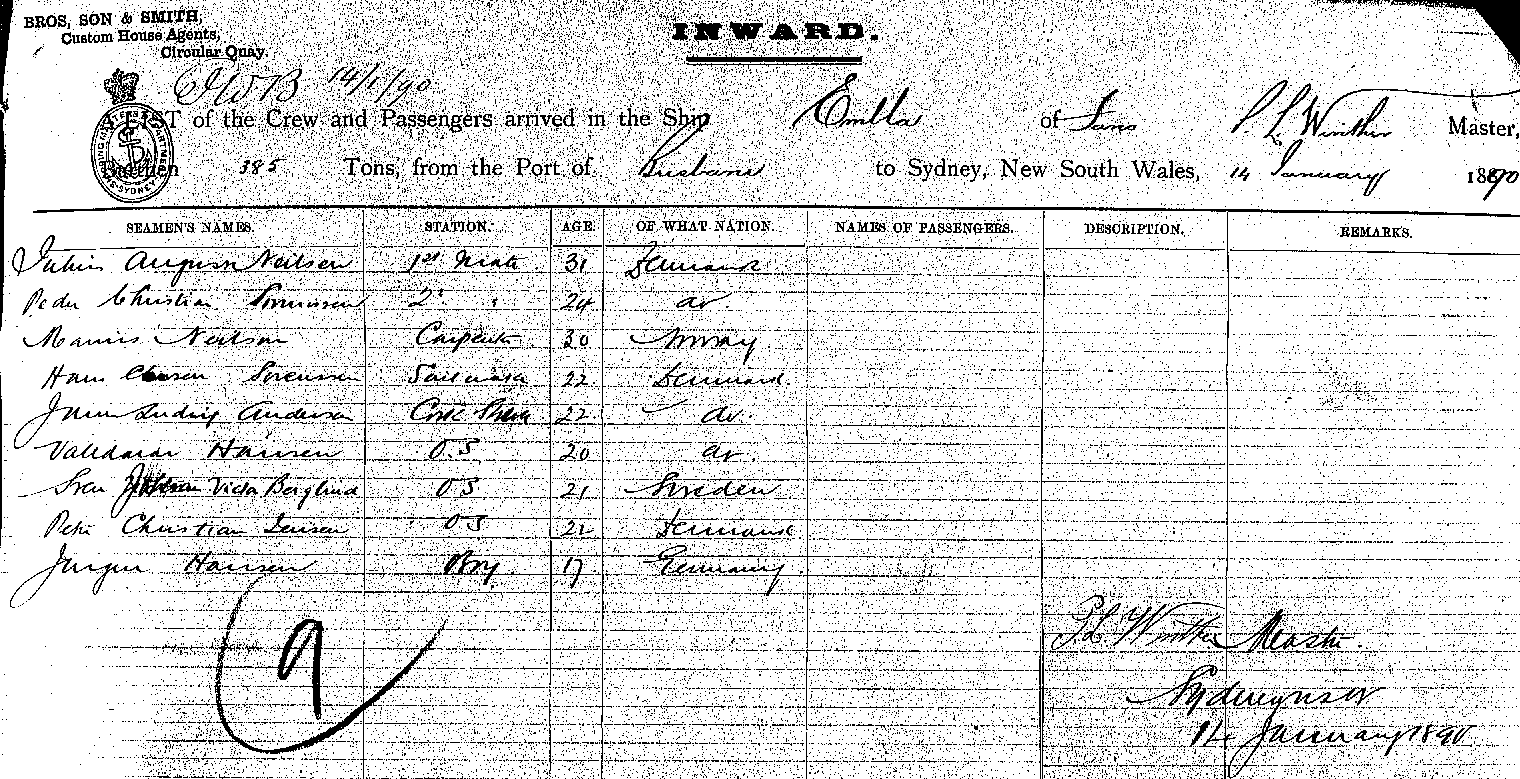 BROS, SON & SMITH,
Custom House Agents,
Circular Quay.
INWARD.
14/1/90
LIST of the Crew and Passengers arrived in the Ship Embla of P. L. Winther Master,
Burthen 385 Tons, from the Port of Brisbane to Sydney, New South Wales, 14 January 1890
SEAMEN'S NAMES. STATION. AGE. OF WHAT NATION. NAMES OF PASSENGERS. DESCRIPTION. REMARKS.
Julius August Neilsen 1st Mate 31 Denmark
Peder Christian 2d " 24 do
Marius Neilson Carpenter 30 Norway
Hans Sorensen Sailmaker 22 Denmark
Ludvig Anderson 22 do
Valdemar Hansen O.S 20 do
Sven Victor Berglund OS 21 Sweden
Peter Christian Jensen OS 22 Denmark
Jurgen Hansen Boy 17 Germany
9
P L Winther Master.
Sydney NSW
14 January 1890